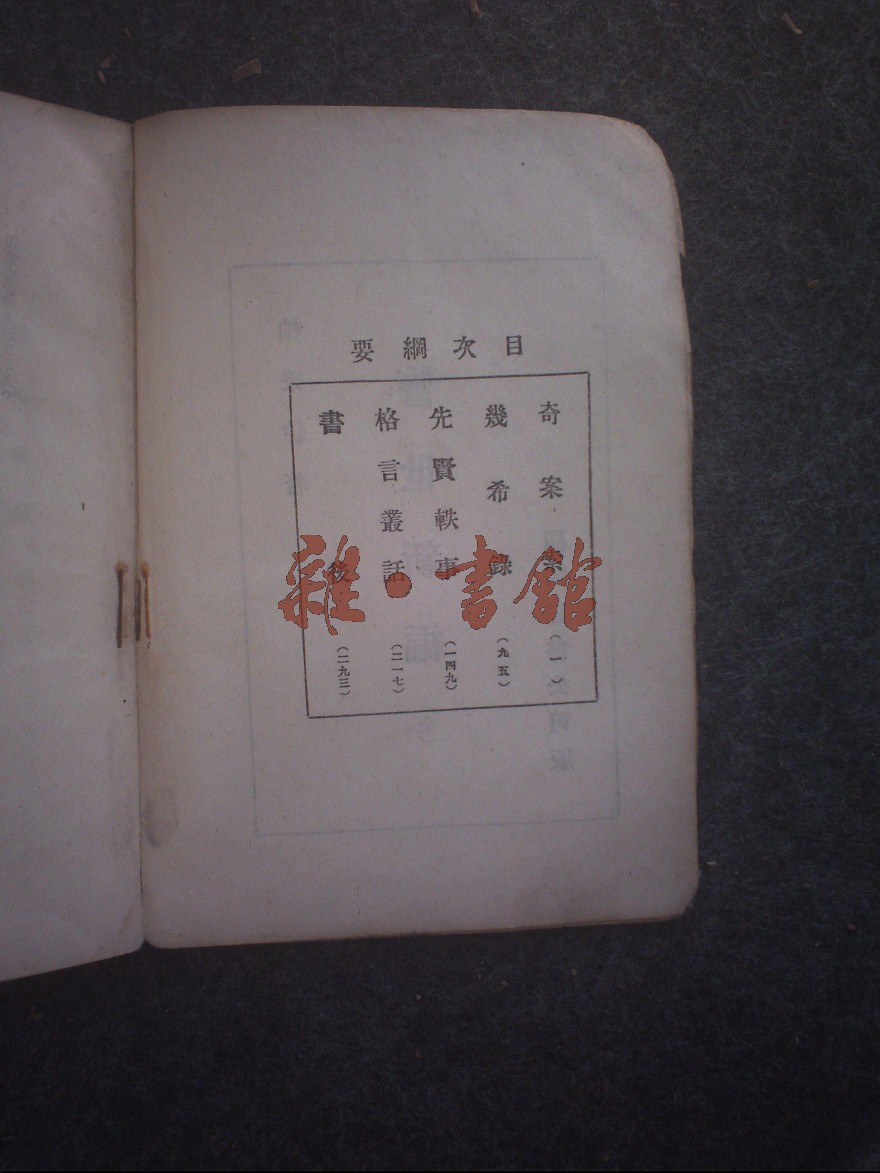 目次綱要
奇案彙 (一)
幾希錄 (九五)
先賢軼事 (一四九)
格言叢話 (二一七)
書後 (二九三)
雜·書館